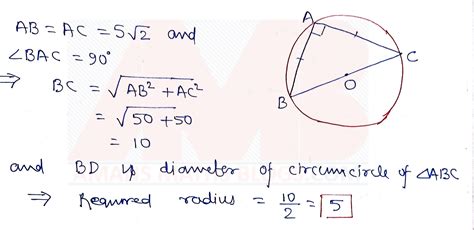 AB = AC = 5√2 and
∠BAC = 90°
⇒ BC = √(AB² + AC²)
= √(50 + 50)
= 10
and BD is diameter of circumcircle of ∠ABC
⇒ Required radius = 10/2 = 5
A
B
C
O